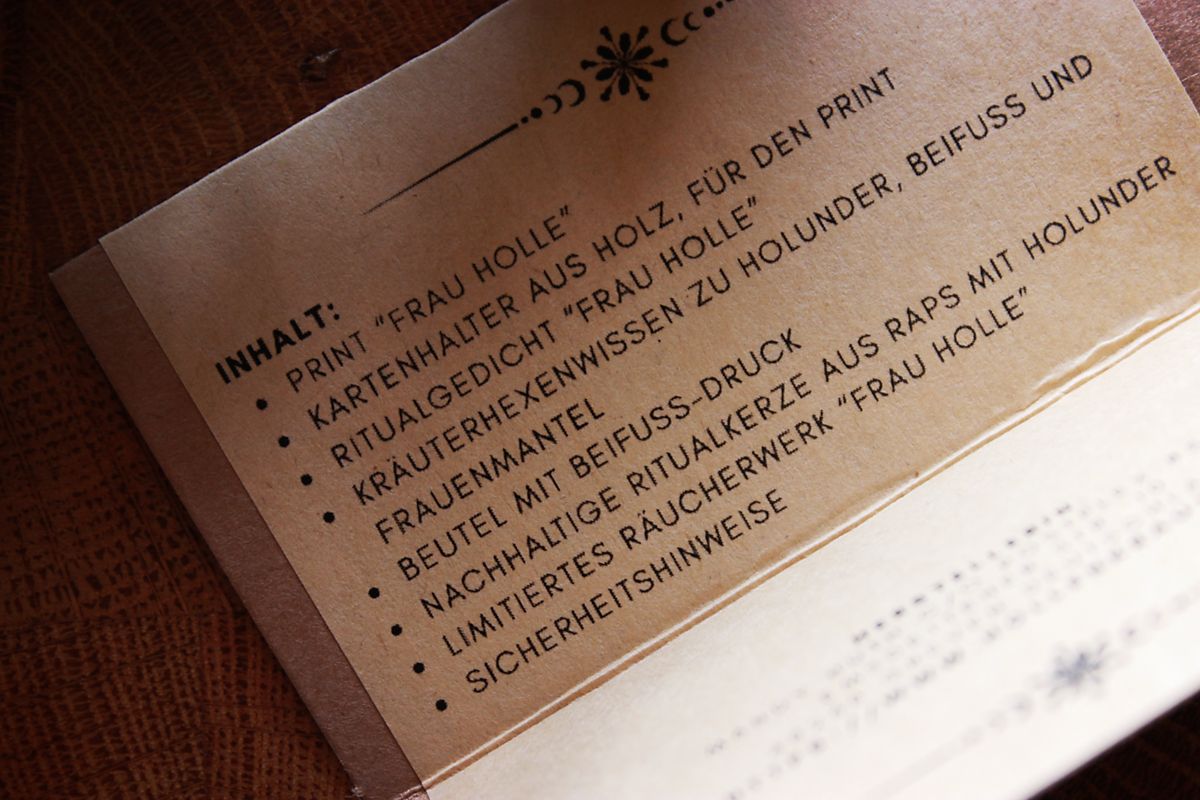 INHALT:
• PRINT "FRAU HOLLE"
• KARTENHALTER AUS HOLZ, FÜR DEN PRINT
• RITUALGEDICHT "FRAU HOLLE"
• KRÄUTERHEXENWISSEN ZU HOLUNDER, BEIFUSS UND
FRAUENMANTEL
• BEUTEL MIT BEIFUSS-DRUCK
• NACHHALTIGE RITUALKERZE AUS RAPS MIT HOLUNDER
• LIMITIERTES RÄUCHERWERK "FRAU HOLLE"
• SICHERHEITSHINWEISE